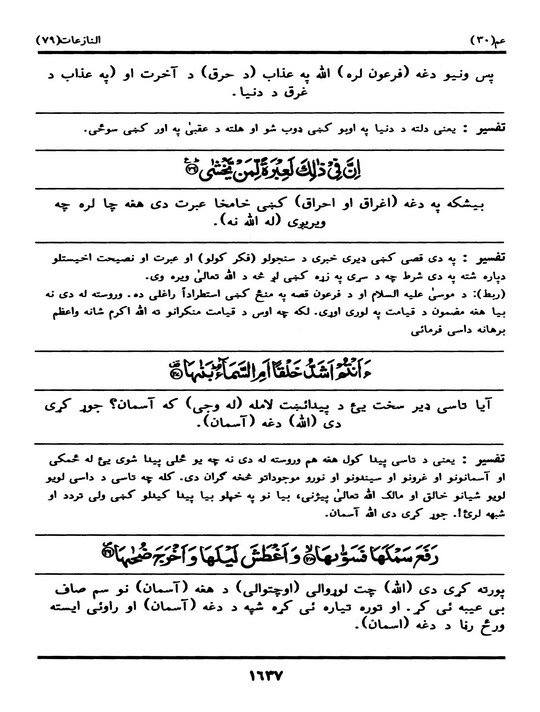 عم(۳۰)
النازعات(۷۹)
پس ونیو دغه (فرعون لره) الله په عذاب (د حرق) د آخرت او (په عذاب د
غرق د دنیا.
تفسیر : یعنی دلته د دنیا په اوبو کښی ډوب شو او هلته د عقبیٰ په اور کښی سوځی.
اِنَّ فِیْ ذٰلِكَ لَعِبْرَةً لِّمَنْ یَّخْشٰی ﴿۲۶﴾
بیشکه په دغه (اغراق او احراق) کښی خامخا عبرت دی هغه چا لره چه
ویریږی (له الله نه).
تفسیر : په دی قصی کښی ډیری خبری د سنجولو (فکر کولو) او عبرت او نصیحت اخیستلو
دپاره شته په دی شرط چه د سړی په زړه کښی لږ څه د الله تعالیٰ ویره وی.
(ربط): د موسیٰ علیه السلام او د فرعون قصه په منځ کښی استطراداً راغلی ده. وروسته له دی نه
بیا هغه مضمون د قیامت په لوری اوړی. لکه چه اوس د قیامت منکرانو ته الله اکرم شانه واعظم
برهانه داسی فرمائی
ءَاَنْتُمْ اَشَدُّ خَلْقًا اَمِ السَّمَآءُ بَنٰىهَا ﴿۲۷﴾
آیا تاسی ډیر سخت یئ د پیدائښت لامله (له وجی) که آسمان؟ جوړ کړی
دی (الله) دغه (آسمان).
تفسیر : یعنی د تاسی پیدا کول هغه هم وروسته له دی نه چه یو ځلی پیدا شوی یئ له ځمکی
او آسمانونو او غرونو او سیندونو او نورو موجوداتو څخه گران دی. کله چه تاسی د داسی لویو
لویو شیانو خالق او مالک الله تعالیٰ پیژنی، بیا نو په خپلو بیا پیدا کیدلو کښی ولی تردد او
شبهه لرئ!. جوړ کړی دی الله آسمان.
رَفَعَ سَمْكَهَا فَسَوّٰىهَا ﴿۲۸﴾ وَ اَغْطَشَ لَیْلَهَا وَ اَخْرَجَ ضُحٰىهَا ﴿۲۹﴾
پورته کړی دی (الله) چت لوړوالی (اوچتوالی) د هغه (آسمان) نو سم صاف
بی عیبه ئی کړ. او توره تیاره ئی کړه شپه د دغه (آسمان) او راوئی ایسته
ورځ رنا د دغه (اسمان).
۱٦۳۷